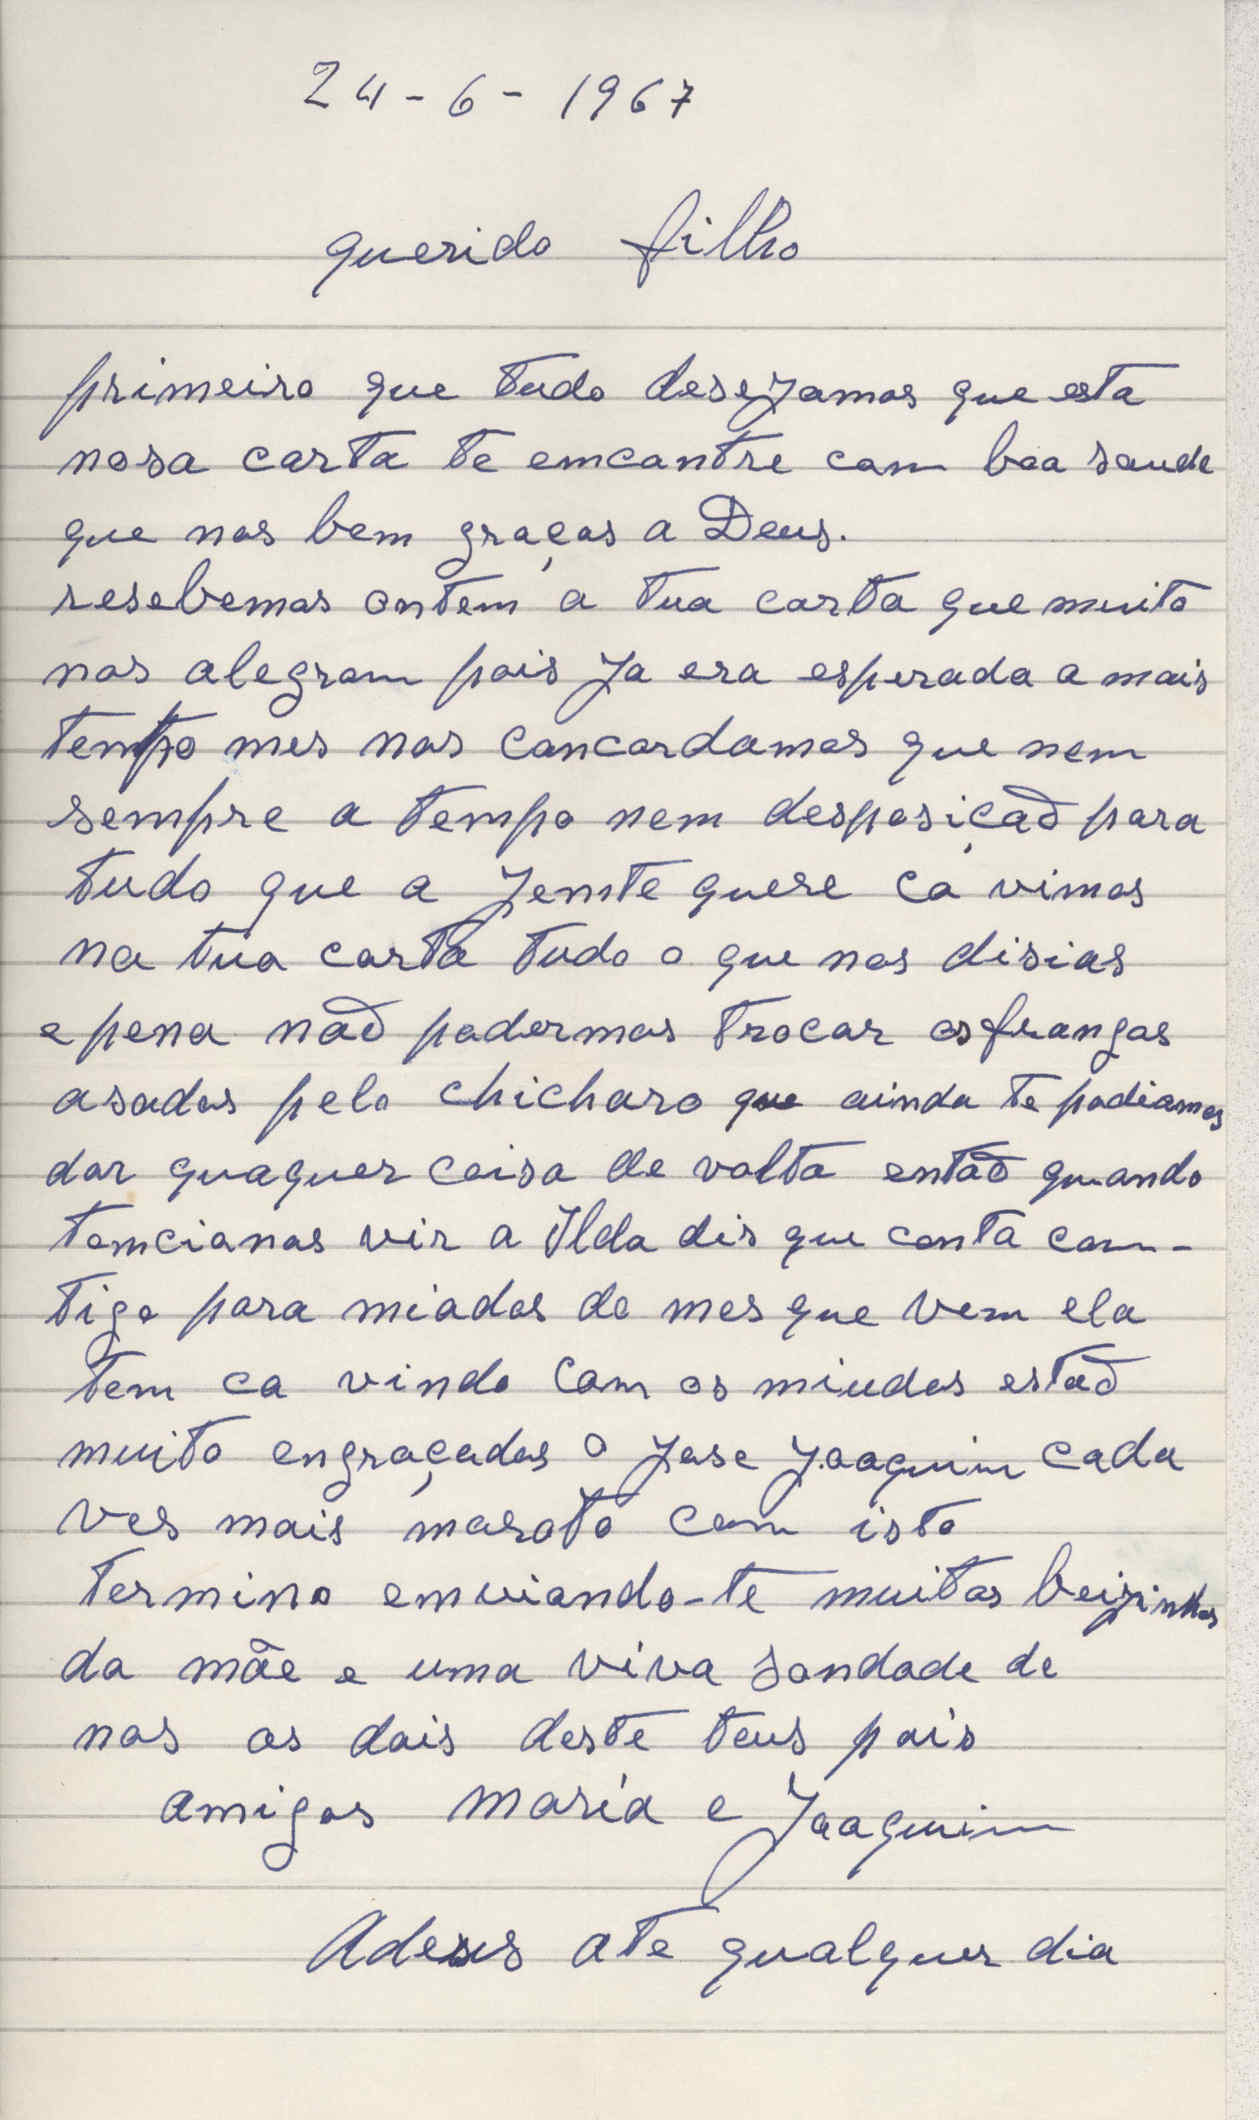 24-6-1967
querido filho
primeiro que tudo desejamos que esta
nosa carta te emcontre com boa saude
que nos bem graças a Deus.
resebemos ontem a tua carta que muito
nos alegrom pois ja era esperada a mais
tempo mes nos concordamos que nem
sempre a tempo nem desposição para
tudo que a jemte quere cá vimos
na tua carta tudo o que nos disias
e pena não podermos trocar os frangos
asados pelo chicharo que ainda te podiamos
dar quaquer coisa de volta então quando
temcionas vir a Ilda dis que conta com-
tigo para miados do mes que vem ela
tem ca vindo com os miudos estão
muito engraçados o jose joaquim cada
ves mais maroto com isto
termino emviando-te muitos beijinhos
da mãe e uma viva sondade de
nos os dois deste teus pais
amigos maria e Joaquim
Adeus ate qualquer dia